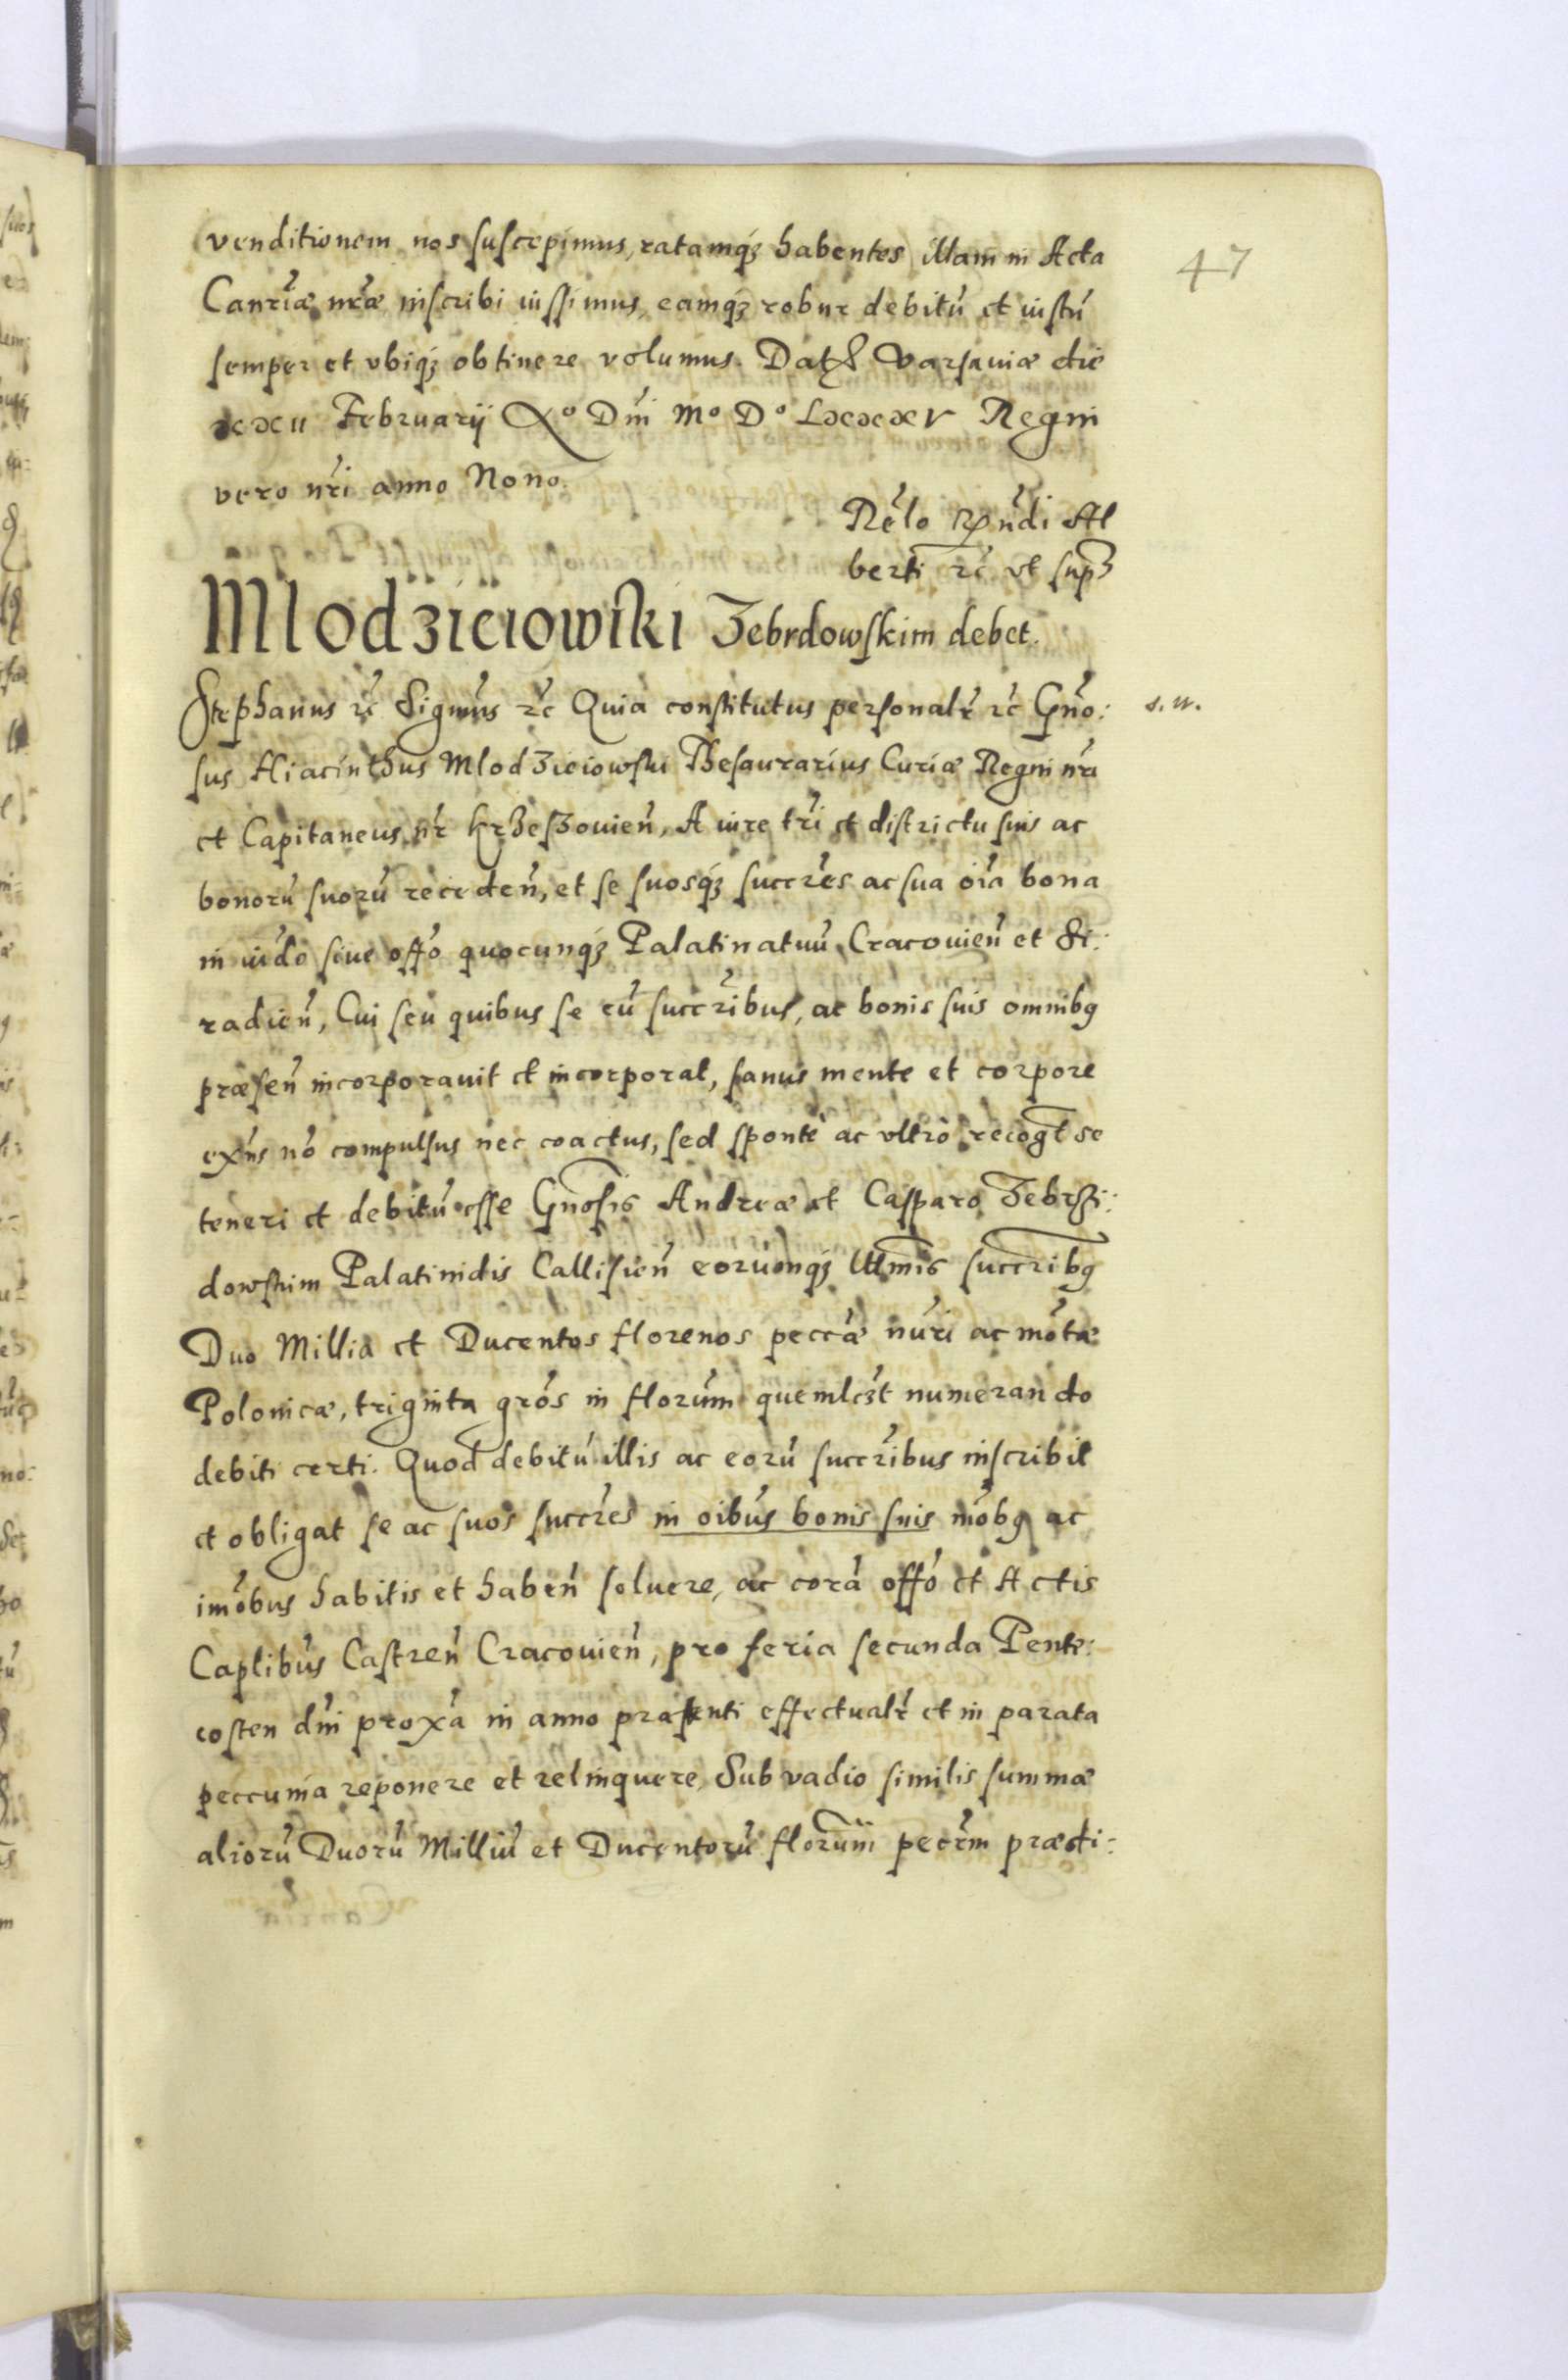 47
venditionem nos suscepimus, ratamq́3 habentes illam in Acta
Canr̃iæ nr̃æ inscribi iussimus, eamq́3 robur debitũ et iustũ
semper et vbiq́3 obtinere volumus. Dat Varsauiæ die
xxii Februarij Ao Dñi Mo Do Lxxxv Regni
vero nr̃i anno Nono.
Rẽlo Rpñdi Al
berti rc̃ vt sup3
Mlodzieiowski Zebrdowskim debet.
Stephanus rc̃ Signm̃s rc̃ Quia constitutus personalr̃ rc̃ Gño:
s. w.
sus Hiacinthus Mlodzieiowski Thesaurarius Curiæ Regni nr̃i
et Capitaneus nr̃ Krzeszouieñ, A iure tr̃i et districtu suis ac
bonorũ suorũ recedeñ, et se suosq́3 succr̃es ac sua oĩa bona
in iudo siue offõ quocunq́3 Palatinatuũ Cracouieñ et Si:
radieñ, Cui seu quibus se cũ succr̃ibus, ac bonis suis omnib9
præseñ incorporauit et incorporat, sanus mente et corpore
exñs nõ compulsus nec coactus, sed spontè ac vltrò recogt̃ se
teneri et debitũ esse Gnosis̃ Andreæ et Casparo Zebrzi:
dowskim Palatinidis Callisieñ eorumq́3 lltmis̃ succr̃ib9
Duo Millia et Ducentos florenos peccæ̃ nũri ac mõtæ
Polonicæ, triginta grõs in florũm quemlc3t numerando
debiti certi. Quod debitũ illis ac eorũ succr̃ibus inscribit
et obligat se ac suos succr̃es in oĩbus bonis suis mõb9 ac
imõbus habitis et habeñ soluere, ac corã offõ et Actis
Caplibũs Castreñ Cracouieñ, pro feria secunda Pente:
costen dñi proxã in anno præsenti effectualr̃ et in parata
peccunia reponere et relinquere, Sub vadio similis summæ
aliorũ Duorũ Milliũ et Ducentorũ florũm pecr̃m prædi: